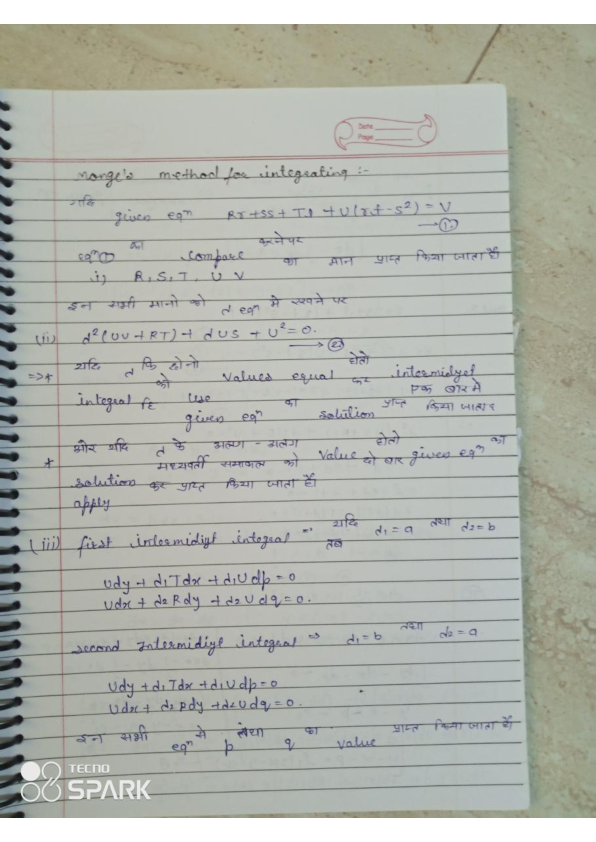 Date
Page
Monge's method for integrating :-
यदि
given eqn Rr + SS + Tt + U(rt - s²) = V
→ ①
eqn ① का compare करने पर का मान प्राप्त किया जाता है
i) R, S, T, U V
इन सभी मानो को λ eqn मे रखने पर
(ii) λ²(UV + RT) + λUS + U² = 0.
→ ②
=>* यदि λ कि दोनो values equal होतो intermidyet
integral को use कर एक बार मे
given eqn का solution प्राप्त किया जाता है
* और यदि λ के अलग - अलग value होतो
मध्यवर्ती समाकल को दो बार given eqn को
solution कर प्राप्त किया जाता है।
apply
(iii) first intermidiyt integral => यदि λ₁ = a तथा λ₂ = b
तब
Udy + λ₁Tdx + λ₁Udp = 0
Udx + λ₂Rdy + λ₂Udq = 0.
second Intermidiyt integral => λ₁ = b तथा λ₂ = a
Udy + λ₁Tdx + λ₁Udp = 0
Udx + λ₂Rdy + λ₂Udq = 0.
इन सभी eqn से p तथा q का value प्राप्त किया जाता है।
TECNO
SPARK